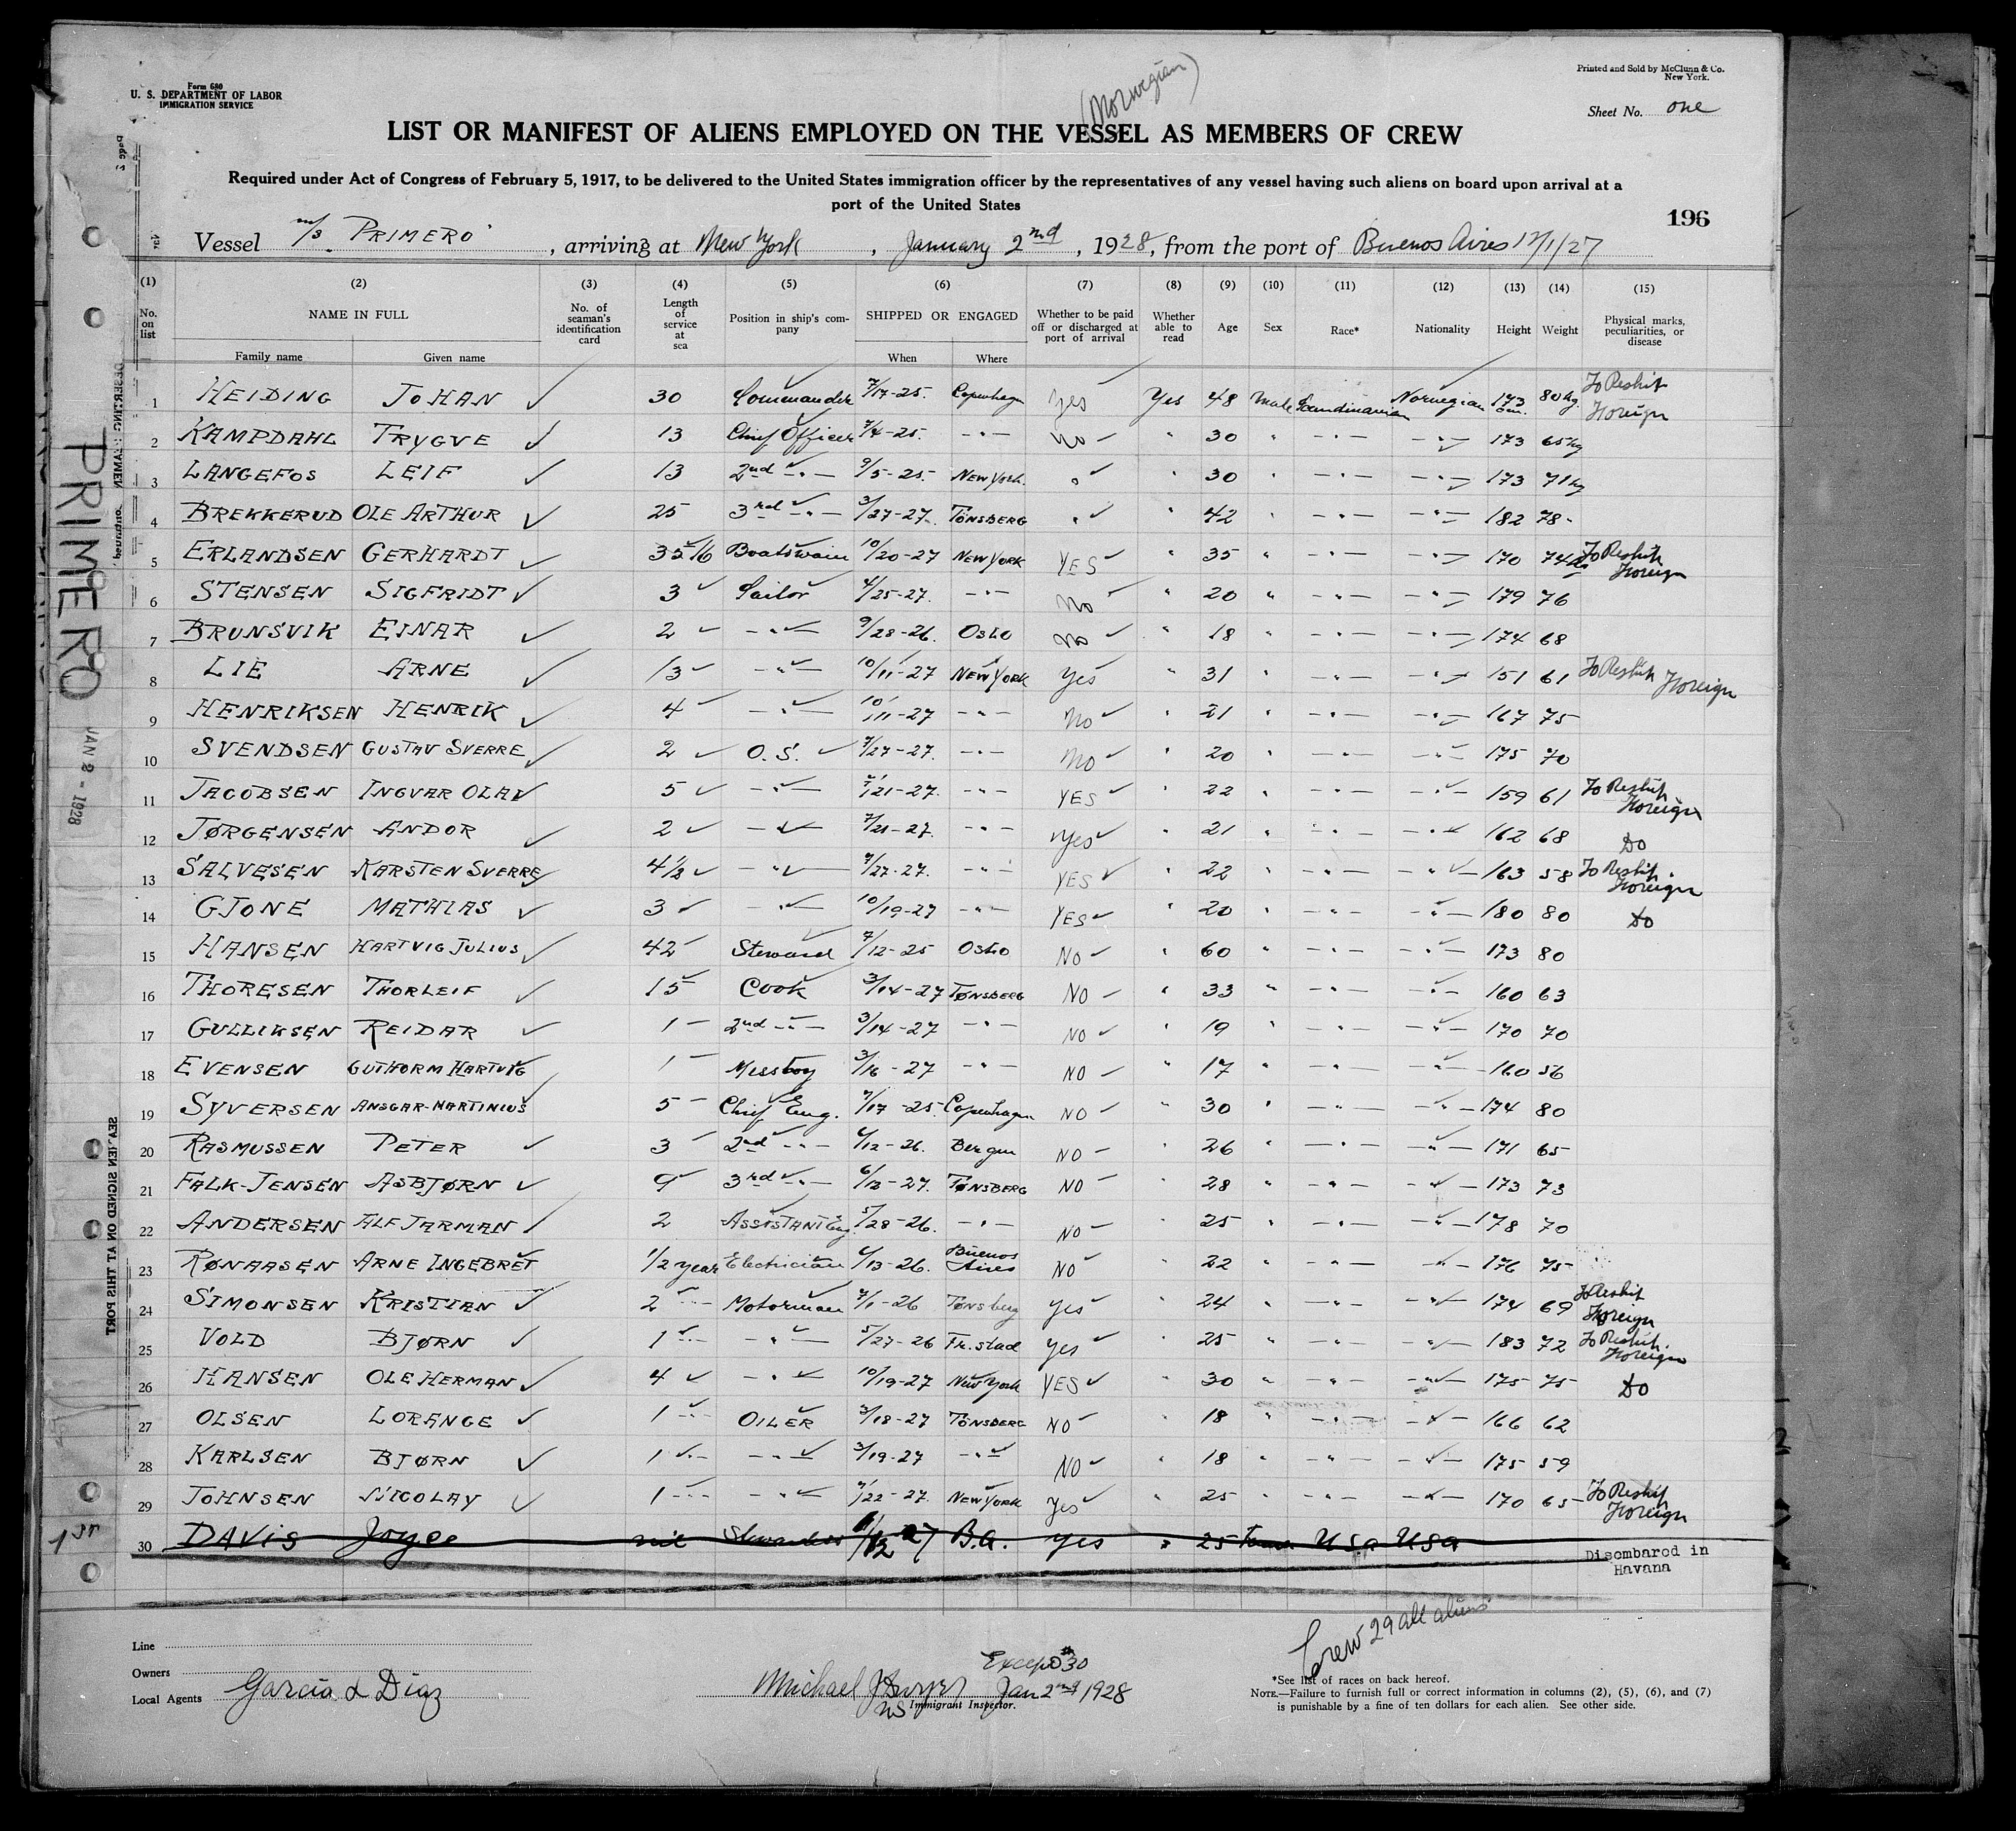 Form 680
U. S. DEPARTMENT OF LABOR
IMMIGRATION SERVICE
(Norwegian)
Printed and Sold by McClunn & Co.
New York.
Sheet No. one
LIST OR MANIFEST OF ALIENS EMPLOYED ON THE VESSEL AS MEMBERS OF CREW
Required under Act of Congress of February 5, 1917, to be delivered to the United States immigration officer by the representatives of any vessel having such aliens on board upon arrival at a
port of the United States
196
Vessel m/s "PRIMERO", arriving at New York, January 2nd, 1928, from the port of Buenos Aires 12/1/27
(1) (2) (3) (4) (5) (6) (7) (8) (9) (10) (11) (12) (13) (14) (15)
No. on list NAME IN FULL No. of seaman's identification card Length of service at sea Position in ship's company SHIPPED OR ENGAGED Whether to be paid off or discharged at port of arrival Whether able to read Age Sex Race* Nationality Height Weight Physical marks, peculiarities, or disease
Family name Given name When Where
1 HEIDING JOHAN 30 Commander 7/17-25. Copenhagen Yes Yes 48 Male Scandinavian Norwegian 173 cm. 80 kg. To Reship Foreign
2 KAMPDAHL TRYGVE 13 Chief Officer 7/4-25. -"- No " 30 " -"- -"- 173 65 kg
3 LANGEFOS LEIF 13 2nd -"- 9/5-25. NEW YORK. " " 30 " -"- -"- 173 71 kg
4 BREKKERUD OLE ARTHUR 25 3rd -"- 3/27-27. TÖNSBERG " " 42 " -"- -"- 182 78 "
5 ERLANDSEN GERHARDT 35 16 Boatswain 10/20-27 NEW YORK YES " 35 " -"- -"- 170 74 To Reship Foreign
6 STENSEN SIGFRIDT 3 Sailor 4/25-27. -"- No " 20 " -"- -"- 179 76
7 BRUNSVIK EINAR 2 -"- 9/28-26. OSLO No " 18 " -"- -"- 174 68
8 LIE ARNE 13 -"- 10/11-27 NEW YORK Yes " 31 " -"- -"- 151 61 To Reship Foreign
9 HENRIKSEN HENRIK 4 -"- 10/11-27 -"- No " 21 " -"- -"- 167 75
10 SVENDSEN GUSTAV SVERRE 2 O.S. 7/27-27. -"- No " 20 " -"- -"- 175 70
11 JACOBSEN INGVAR OLAV 5 -"- 7/21-27. -"- YES " 22 " -"- -"- 159 61 To Reship Foreign
12 JØRGENSEN ANDOR 2 -"- 7/21-27. -"- Yes " 21 " -"- -"- 162 68 Do
13 SALVESEN KARSTEN SVERRE 4 1/2 -"- 7/27-27. -"- YES " 22 " -"- -"- 163 58 To Reship. Foreign
14 GJONE MATHIAS 3 -"- 10/19-27 -"- YES " 20 " -"- -"- 180 80 Do
15 HANSEN HARTVIG JULIUS 42 Steward 7/12-25 OSLO NO " 60 " -"- -"- 173 80
16 THORESEN THORLEIF 15 Cook 3/14-27 TØNSBERG NO " 33 " -"- -"- 160 63
17 GULLIKSEN REIDAR 1 2nd -"- 3/14-27 -"- NO " 19 " -"- -"- 170 70
18 EVENSEN GUTHORM HARTVIG 1 Messboy 3/16-27 -"- NO " 17 " -"- -"- 160 56
19 SYVERSEN ANSGAR-MARTINIUS 5 Chief Eng. 7/17-25. Copenhagen NO " 30 " -"- -"- 174 80
20 RASMUSSEN PETER 3 2nd -"- 6/12-26. Bergen NO " 26 " -"- -"- 171 65
21 FALK-JENSEN ASBJØRN 9 3rd -"- 6/12-27. TØNSBERG NO " 28 " -"- -"- 173 73
22 ANDERSEN ALF JARMAN 2 ASSISTANT Eng. 5/28-26. -"- NO " 25 " -"- -"- 178 70
23 RØNAASEN ARNE INGEBRET 1/2 year Electrician 6/13-26. Buenos Aires NO " 22 " -"- -"- 176 75
24 SIMONSEN KRISTIAN 2 -"- Motorman 7/1-26 Tønsberg Yes " 24 " -"- -"- 174 69 To Reship Foreign
25 VOLD BJØRN 1 -"- -"- 5/27-26 Fr.stad Yes " 25 " -"- -"- 183 72 To Reship. Foreign
26 HANSEN OLE HERMAN 4 -"- 10/19-27 New York YES " 30 " -"- -"- 175 75 Do
27 OLSEN LORANGE 1 -"- OILER 3/18-27 TÖNSBERG NO " 18 " -"- -"- 166 62
28 KARLSEN BJØRN 1 -"- -"- 3/19-27 -"- NO " 18 " -"- -"- 175 59
29 JOHNSEN NICOLAY 1 -"- -"- 7/22-27. NEW YORK Yes " 25 " -"- -"- 170 65 To Reship Foreign
30 DAVIS Joyce nil Stewardess 1/12 27 B.A. Yes " 25 USA USA Disembared in Havana
Crew 29 all aliens
Line
Owners
Local Agents Garcia & Diaz
Except #30
Michael Jan 2nd 1928
Immigrant Inspector.
*See list of races on back hereof.
NOTE.—Failure to furnish full or correct information in columns (2), (5), (6), and (7)
is punishable by a fine of ten dollars for each alien. See other side.
PRIMERO
JAN 2 - 1928
SEAMEN SIGNED ON AT THIS PORT